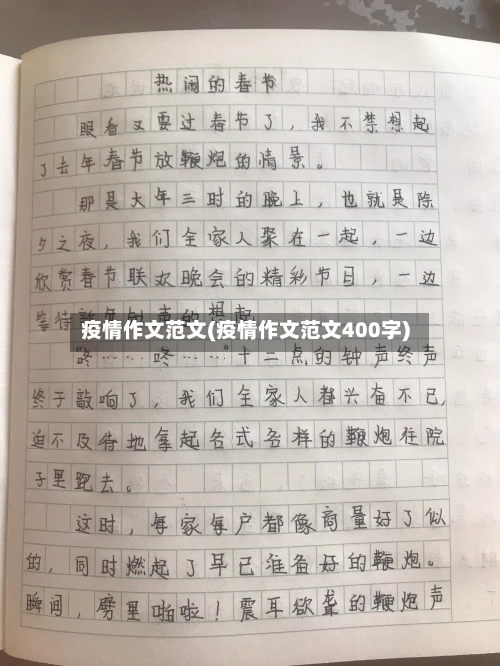 热闹的春节
眼看又要过春节了，我不禁想起
了去年春节放鞭炮的情景。
那是大年三时的晚上，也就是除
夕之夜，我们全家人聚在一起，一边
欣赏春节联欢晚会的精彩节目，一边
等待
疫情作文范文(疫情作文范文400字)
“咚……咚……”十二点的钟声终声
终于敲响了，我们全家人都兴奋不已，
迫不及待地拿起各式各样的鞭炮往院
子里跑去。
这时，每家每户都像商量好了似
的，同时燃起了早已准备好的鞭炮。
瞬间，劈里啪啦！震耳欲聋的鞭炮声